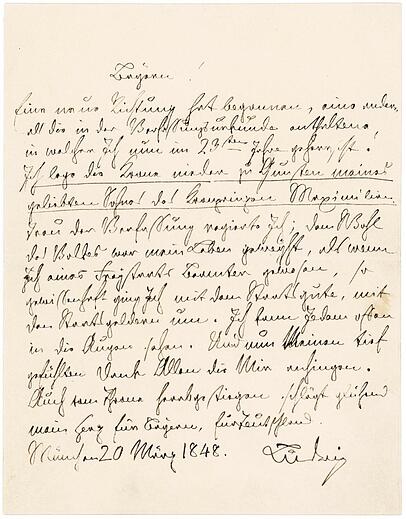 Bayern!
Eine neue Richtung hat begonnen, eine andere,
als die in der Verfassungsurkunde enthaltene
in welcher Ich nun im 23sten Jahre geherrscht.
Ich lege die Krone nieder zu Gunsten meines
geliebten Sohnes des Kronprinzen Maximilian.
Treu der Verfassung regierte Ich; dem Wohl
des Volkes war mein Leben geweiht, als wenn
Ich eines Freystaats Beamter gewesen, so
gewissenhaft ging Ich mit dem Staatsgute, mit
den Staatsgeldern um. Ich kann jedem offen
in die Augen sehen. Und nun Meinen tief
gefühlten Dank Allen die Mir anhingen.
Auch vom Throne herabgestiegen schlägt glühend
mein Herz für Bayern, für Teutschland.
München 20 März 1848. Ludwig